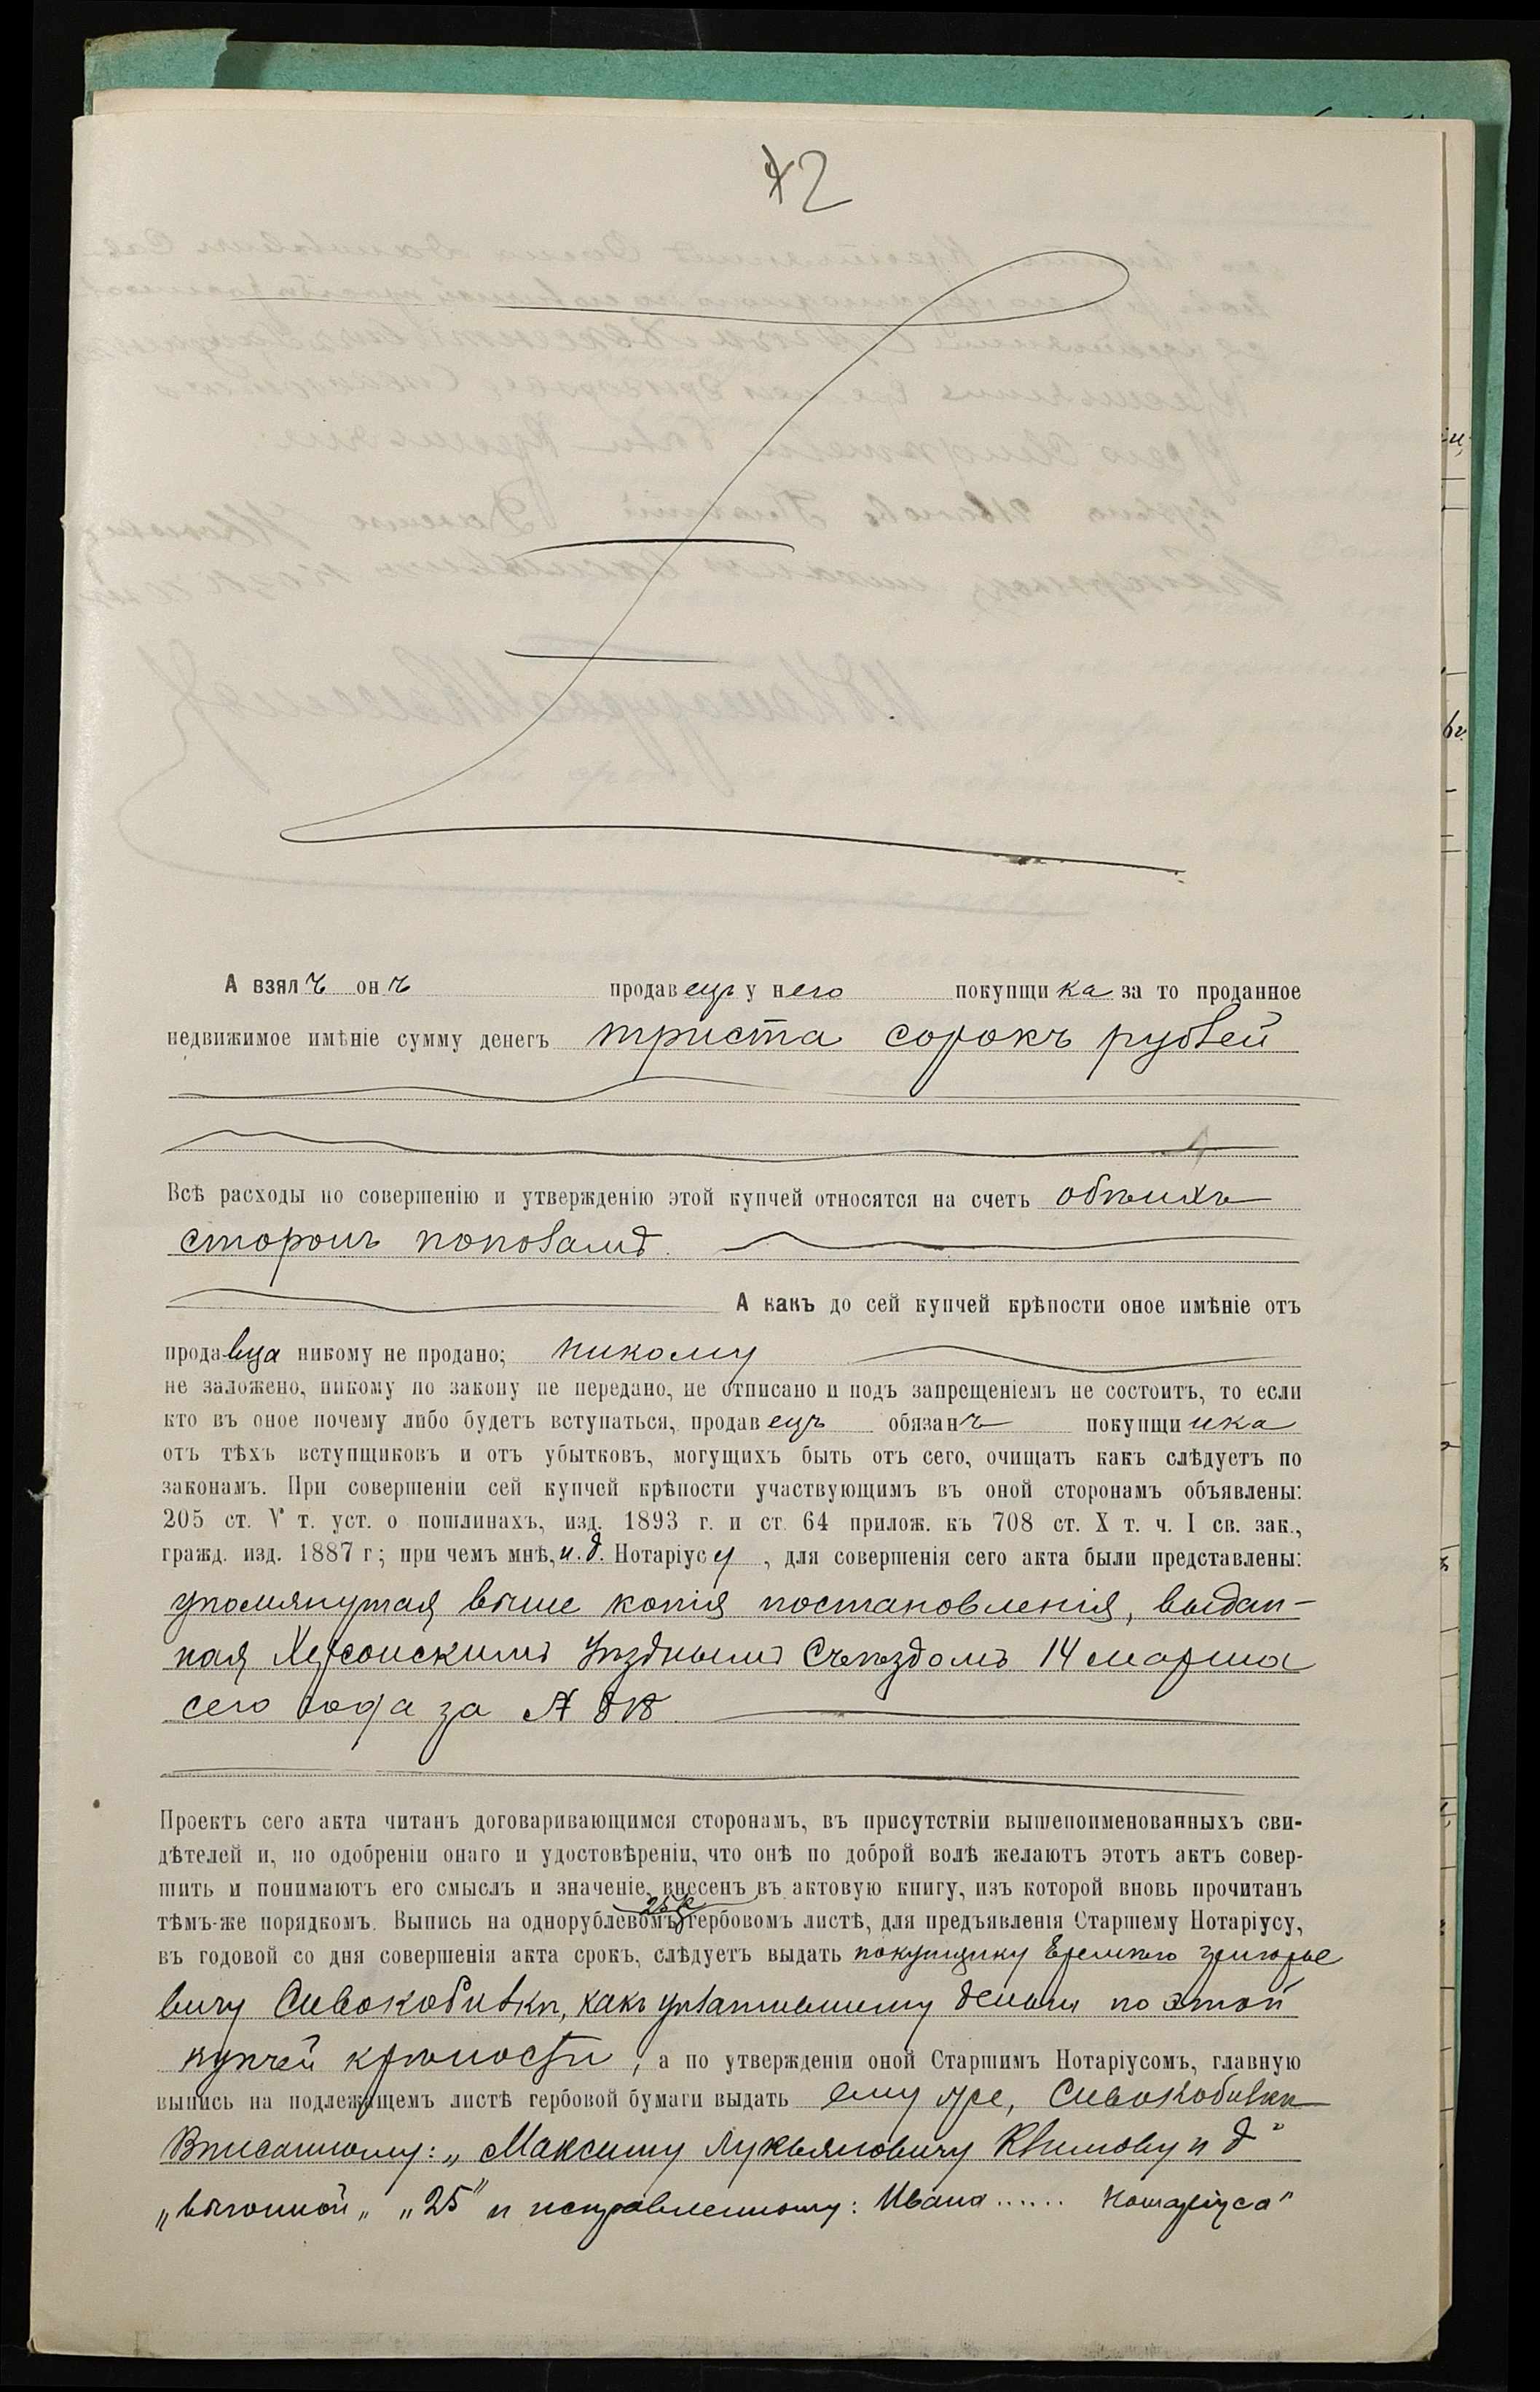 2
А взялъ онъ продавецъ у него покупщика за то проданное
недвижимое имѣніе сумму денегъ триста сорокъ рублей
Всѣ расходы по совершенію и утвержденію этой купчей относятся на счетъ обѣихъ
сторонъ пополамъ.
А какъ до сей купчей крѣпости оное имѣніе отъ
продавца никому не продано; никому
не заложено, никому по закону не передано, не отписано и подъ запрещеніемъ не состоитъ, то если
кто въ оное почему либо будетъ вступаться, продавецъ обязанъ покупщика
отъ тѣхъ вступщиковъ и отъ убытковъ, могущихъ быть отъ сего, очищать какъ слѣдуетъ по
законамъ. При совершеніи сей купчей крѣпости участвующимъ въ оной сторонамъ объявлены:
205 ст. V т. уст. о пошлинахъ, изд. 1893 г. и ст. 64 прилож. къ 708 ст. X т. ч. I св. зак.,
гражд. изд. 1887 г; при чемъ мнѣ, и.д. Нотаріусу, для совершенія сего акта были представлены:
упомянутая выше копія постановленія, выдан-
ная Херсонскимъ Уѣзднымъ Съѣздомъ 14 марта
сего года за №
Проектъ сего акта читанъ договаривающимся сторонамъ, въ присутствіи вышепоименованныхъ сви-
дѣтелей и, по одобреніи онаго и удостовѣреніи, что онѣ по доброй волѣ желаютъ этотъ актъ совер-
шить и понимаютъ его смыслъ и значеніе, внесенъ въ актовую книгу, изъ которой вновь прочитанъ
25 к
тѣмъ-же порядкомъ. Выпись на однорублевомъ гербовомъ листѣ, для предъявленія Старшему Нотаріусу,
въ годовой со дня совершенія акта срокъ, слѣдуетъ выдать покупщику Еремѣю Григорье
вичу Сивокобивкѣ, какъ уплатившему деньги по этой
купчей крѣпости, а по утвержденіи оной Старшимъ Нотаріусомъ, главную
выпись на подлежащемъ листѣ гербовой бумаги выдать ему же, Сивокобивкѣ
Вписанному: „Максиму Лукьяновичу Климову и д"
„выгонной„ „25" и исправленному: Ивана ...... Нотаріуса"